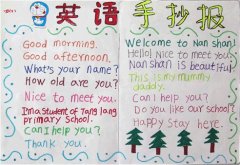 英语手抄报
Good morning.
Good afternoon.
What's your name?
How old are you?
Nice to meet you.
I'm a student of Tang Tang
primary School.
Can I help you?
Thank you.
Welcome to Nan shan!
Hello! Nice to meet you.
Nan shan is beautiful
This is my mummy
daddy.
Can I help you?
Do you like our school?
Happy Stay here.